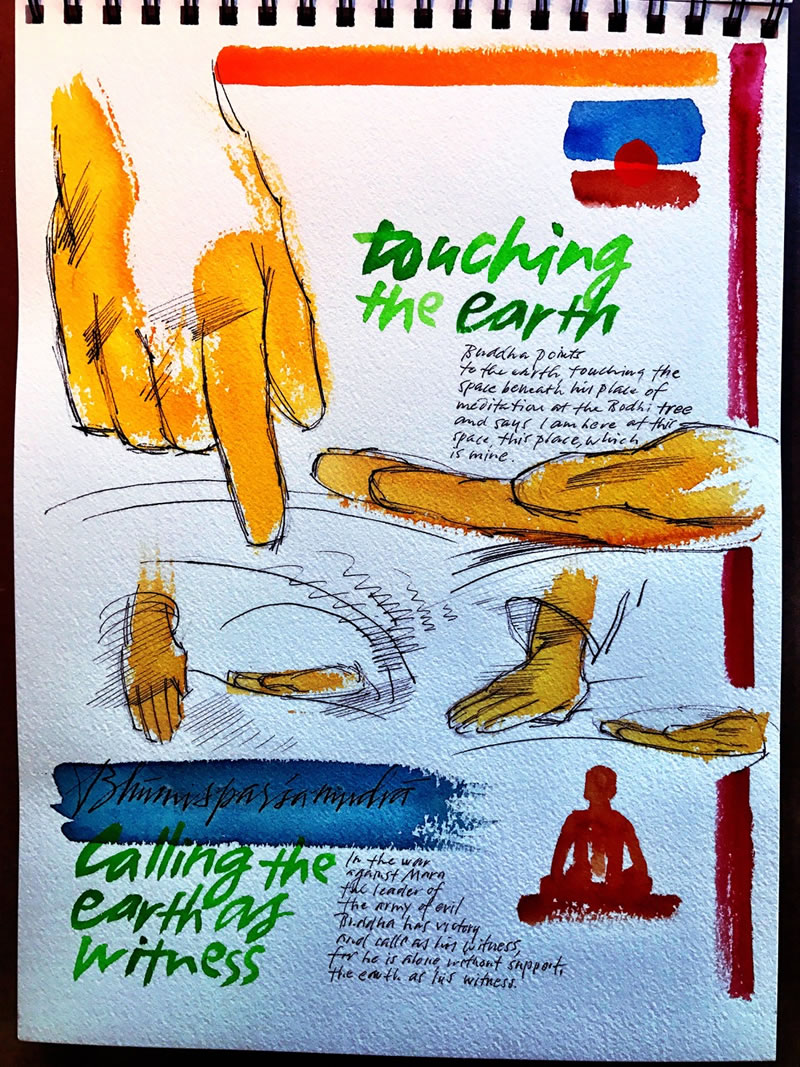 touching
the earth
Buddha points
to the earth touching the
space beneath his place of
meditation at the Bodhi tree
and says I am here at this
space, this place, which
is mine.
Bhūmisparśamudrā
Calling the
earth as
witness
In the war
against Mara
the leader of
the army of evil
Buddha has victory
and calls as his witness,
for he is alone without support,
the earth as his witness.